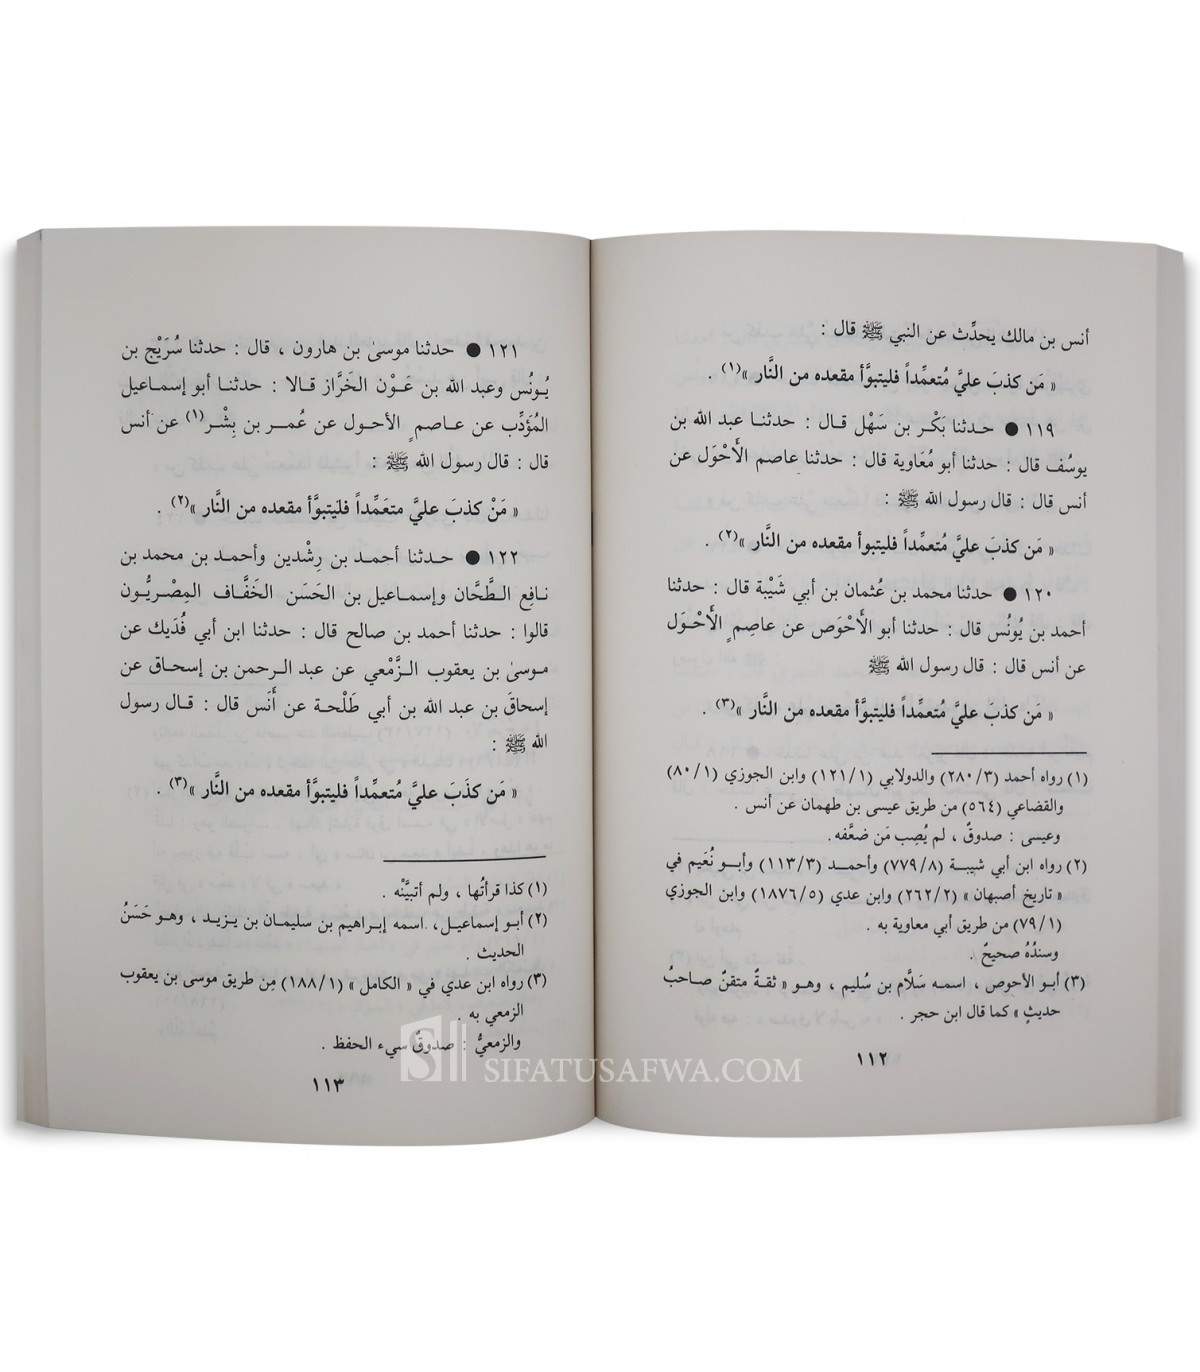 أنس بن مالك يحدِّث عن النبي ﷺ قال :
« مَن كذبَ عليَّ مُتعمِّداً فليتبوَّأ مقعده من النَّار »(١) .
١١٩ ● حـدثنا بَكْـر بن سَهْل قـال : حـدثنـا عبد الله بن
يوسُف قال : حدثنا أبو مُعَاوية قال : حدثنا عاصم الأَحْوَل عن
أنس قال : قال رسول الله ﷺ :
« مَن كذبَ عليَّ مُتعمِّداً فليتبوأ مقعده من النَّار »(٢) .
١٢٠ ● حدثنا محمد بن عُثمان بن أبي شَيْبة قال : حدثنا
أحمد بن يُونُس قال : حدثنا أبو الأَحْوَص عن عاصِمٍ الأَحْـوَل
عن أنس قال : قال رسول الله ﷺ
« مَن كذبَ عليَّ مُتعمِّداً فليتبوَّأ مقعده من النَّار »(٣) .
(١) رواه أحمد (٢٨٠/٣) والدولابي (١٢١/١) وابن الجوزي (٨٠/١)
والقضاعي (٥٦٤) من طريق عيسى بن طهمان عن أنس .
وعيسى : صدوقٌ ، لم يُصِب مَن ضعَّفه.
(٢) رواه ابن أبي شيبـة (٧٧٩/٨) وأحمـد (١١٣/٣) وأبـو نُعَيم في
« تاريخ أصبهان » (٢٦٢/٢) وابن عدي (١٨٧٦/٥) وابن الجوزي
(٧٩/١) من طريق أبي معاوية به .
وسندُهُ صحيحٌ .
(٣) أبـو الأحوص ، اسمـه سَلَّام بن سُليم ، وهـو « ثقـةٌ متقنٌ صـاحبُ
حديثٍ » كما قال ابن حجر .
١١٢
١٢١ ● حدثنا موسىٰ بن هارون ، قال : حدثنا سُرَيْج بن
يُـونُس وعبد الله بن عَـوْن الخَرَّاز قـالا : حدثنـا أبو إسمـاعيل
المُؤَدِّب عن عـاصمٍ الأحـول عن عُمـر بن بِشْـر(١) عن أنس
قال : قال رسول الله ﷺ :
« مَنْ كذبَ عليَّ متعَمِّداً فليَتبوَّأ مقعده من النَّار »(٢) .
١٢٢ ● حـدثنا أحمـد بن رِشْدين وأحمـد بن محمد بن
نـافِع الـطَّحَّان وإسمـاعيل بن الحَسَن الخَفَّـاف المِصْـريُّـون
قالوا : حدثنا أحمد بن صالح قال : حدثنا ابن أبي فُدَيك عن
مـوسىٰ بن يعقوب الـزَّمْعي عن عبد الـرحمن بن إسحـاق عن
إسحاقَ بن عبد الله بن أبي طَلْحـة عن أَنَس قال : قـال رسول
الله ﷺ :
« مَن كَذَبَ عليَّ مُتعمِّداً فليتبوَّأ مقعده من النَّار »(٣) .
(١) كذا قرأتُها ، ولم أتبيَّنْه .
(٢) أبـو إسماعيـل، اسمه إبـراهيم بن سليمـان بن يـزيـد ، وهـو حَسَنُ
الحديث .
(٣) رواه ابن عدي في « الكامل » (١٨٨/١) مِن طريق موسى بن يعقوب
الزمعي به .
والزمعيُّ : صدوقٌ سيء الحفظ .
١١٣
SIFATUSAFWA.COM